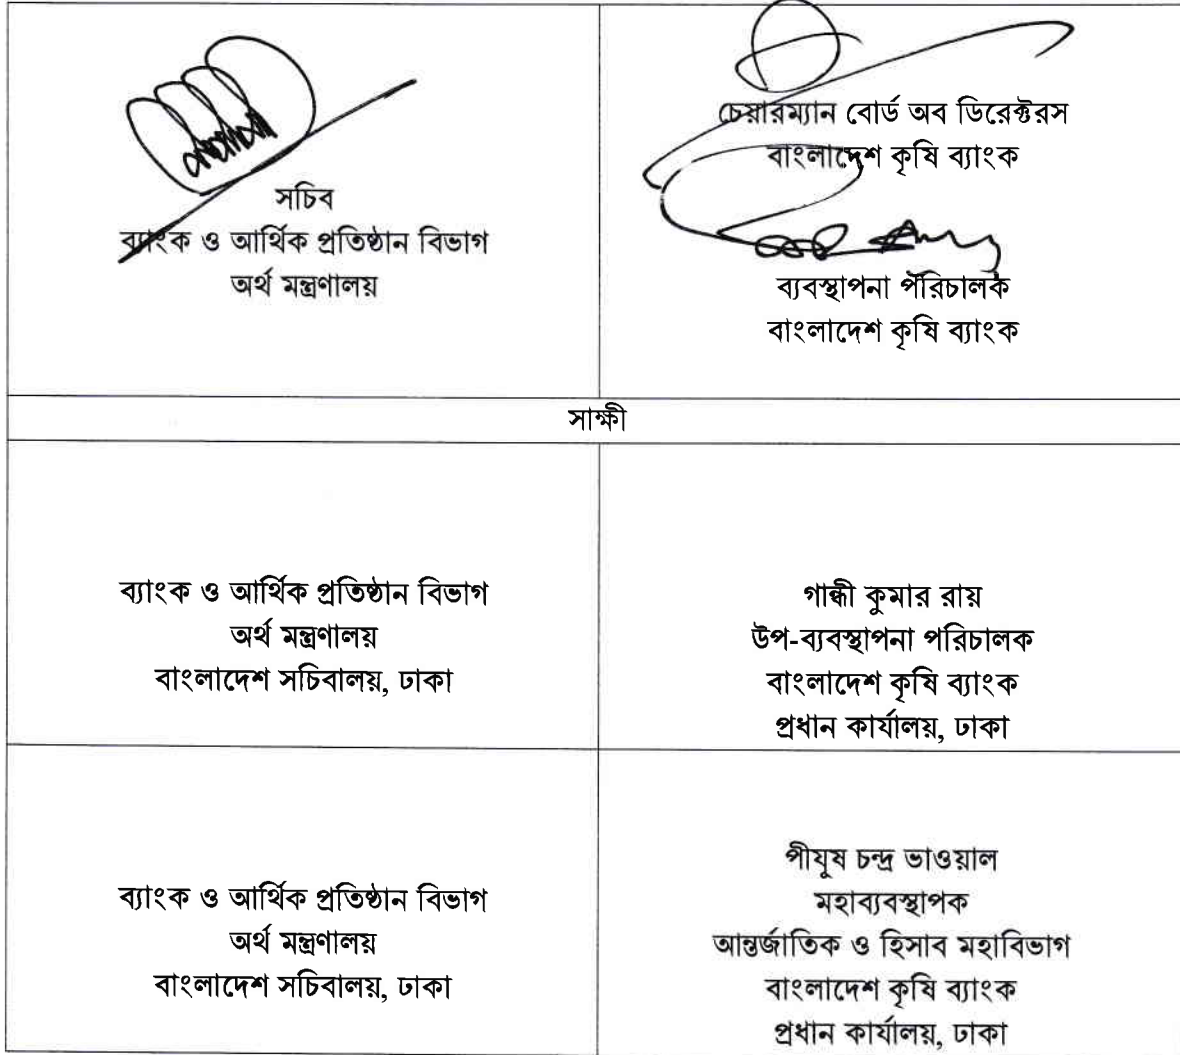 সচিব
ব্যাংক ও আর্থিক প্রতিষ্ঠান বিভাগ
অর্থ মন্ত্রণালয়
চেয়ারম্যান বোর্ড অব ডিরেক্টরস
বাংলাদেশ কৃষি ব্যাংক
ব্যবস্থাপনা পরিচালক
বাংলাদেশ কৃষি ব্যাংক
সাক্ষী
ব্যাংক ও আর্থিক প্রতিষ্ঠান বিভাগ
অর্থ মন্ত্রণালয়
বাংলাদেশ সচিবালয়, ঢাকা
গান্ধী কুমার রায়
উপ-ব্যবস্থাপনা পরিচালক
বাংলাদেশ কৃষি ব্যাংক
প্রধান কার্যালয়, ঢাকা
ব্যাংক ও আর্থিক প্রতিষ্ঠান বিভাগ
অর্থ মন্ত্রণালয়
বাংলাদেশ সচিবালয়, ঢাকা
পীযূষ চন্দ্র ভাওয়াল
মহাব্যবস্থাপক
আন্তর্জাতিক ও হিসাব মহাবিভাগ
বাংলাদেশ কৃষি ব্যাংক
প্রধান কার্যালয়, ঢাকা